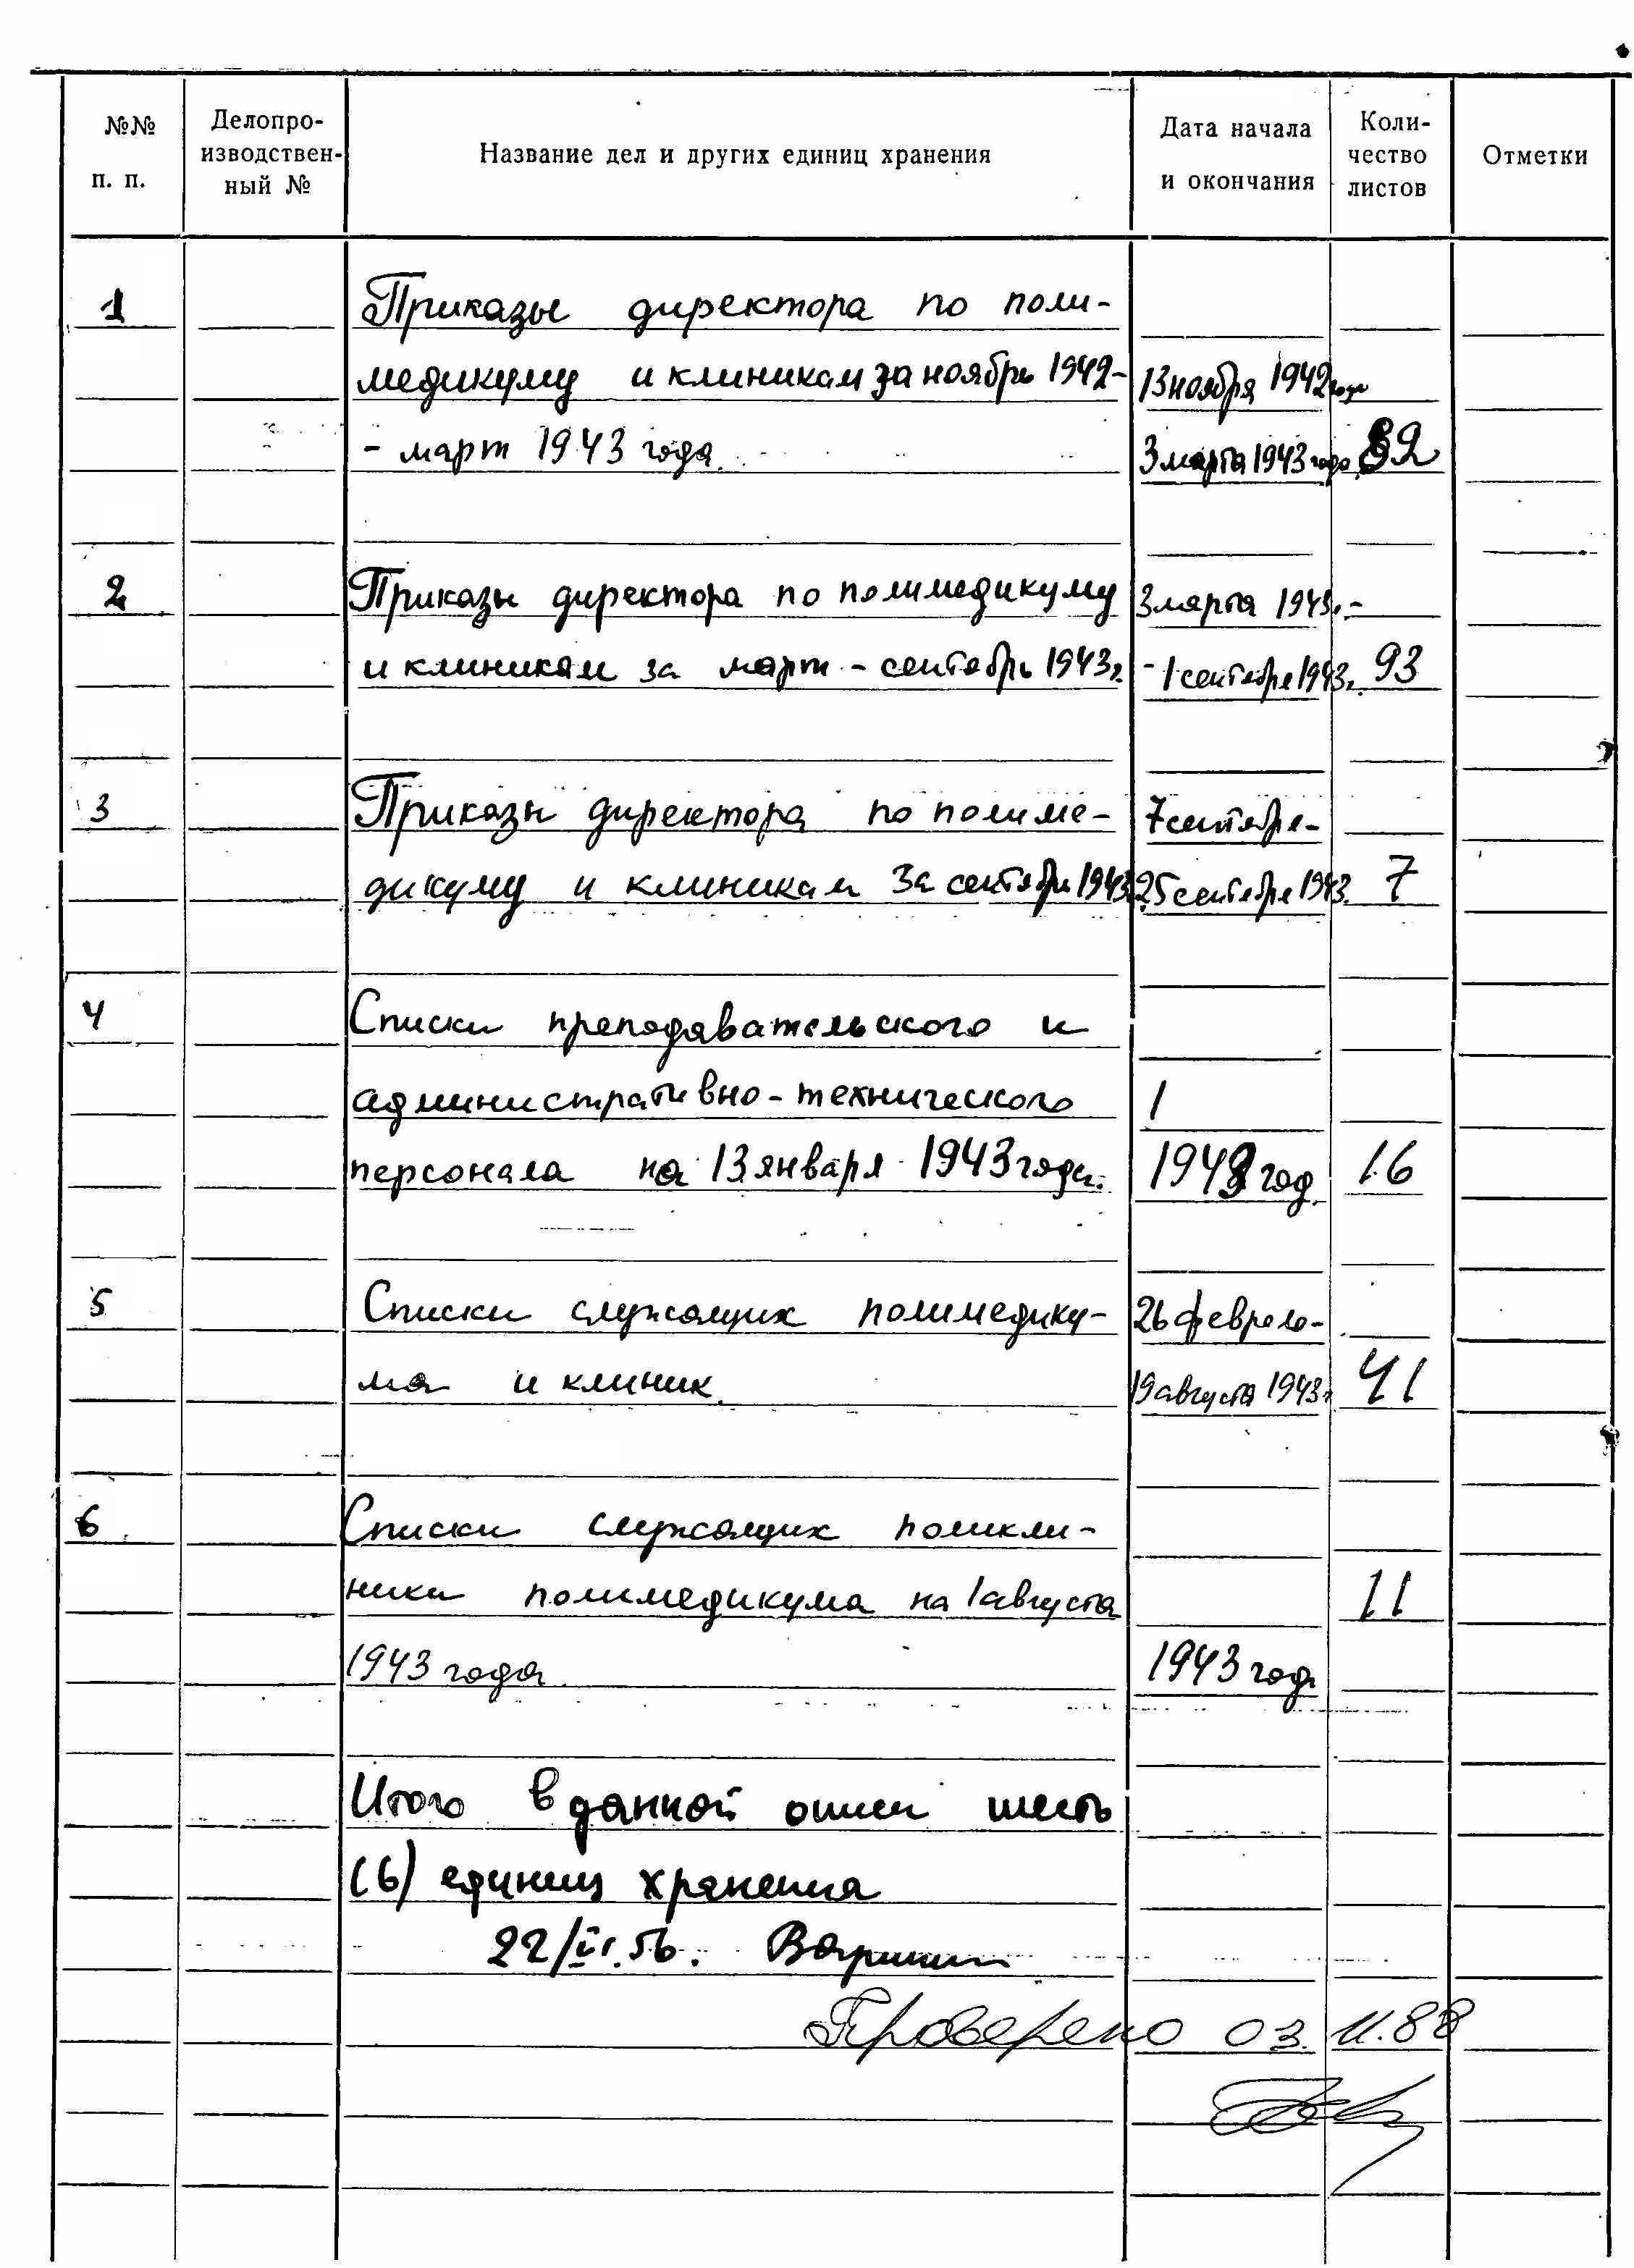 №№ п. п.
Делопро-
изводствен-
ный №
Название дел и других единиц хранения
Дата начала
и окончания
Коли-
чество
листов
Отметки
1 Приказы директора по поли-
медикуму и клиникам за ноябрь 1942- 13 ноября 1942 года
- март 1943 года. 3 марта 1943 года 82
2 Приказы директора по полимедикуму 3 марта 1943г.-
и клиникам за март - сентябрь 1943г. - 1 сентября 1943г. 93
3 Приказы директора по полиме- 7 сентября-
дикуму и клиникам за сентябрь 1943 25 сентября 1943. 7
4 Списки преподавательского и
административно-технического 1
персонала на 13 января 1943 года. 1943 год. 16
5 Списки служащих полимедику- 26 февраля-
ма и клиник. 19 августа 1943г. 41
6 Списки служащих поликли-
ники полимедикума на 1 августа 11
1943 года. 1943 год
Итого в данной описи шесть
(6) единиц хранения
22/VI.56.
Проверено 03.11.88